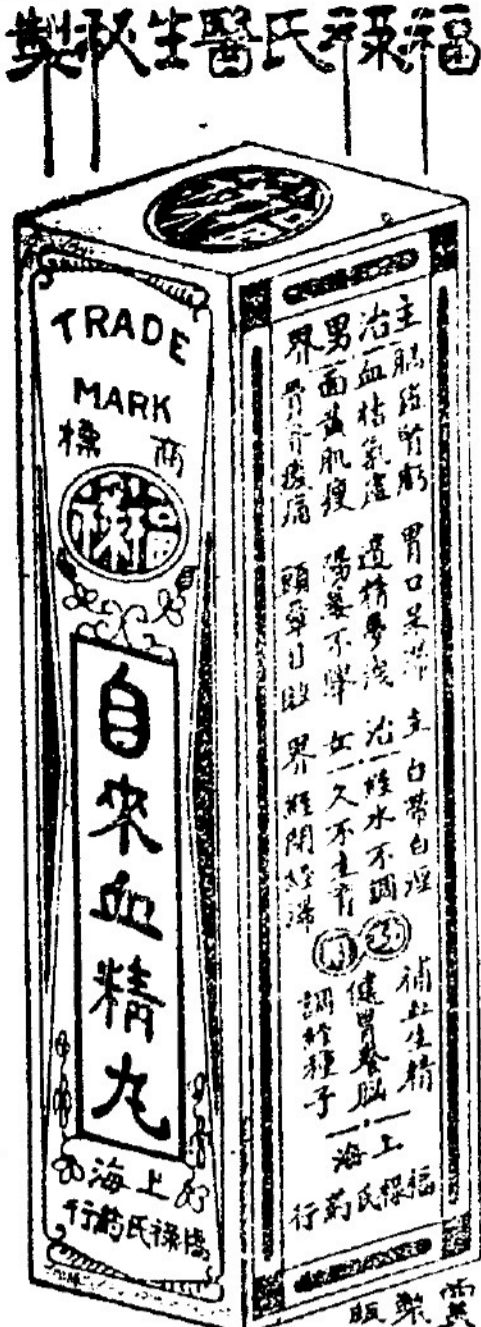 福祿氏醫生秘製
TRADE
MARK
商標
福祿
自來血精丸
上海
福祿氏葯行
主治男界
腦筋暗虧
血枯氣虛
面黃肌瘦
骨脊痠痛
胃口呆滯
遺精夢洩
陽萎不舉
頭暈目眩
主治女界
白帶白淫
經水不調
久不生育
經閉經滯
補血生精
健胃養腦
調經種子
上海
福祿氏葯行
製版